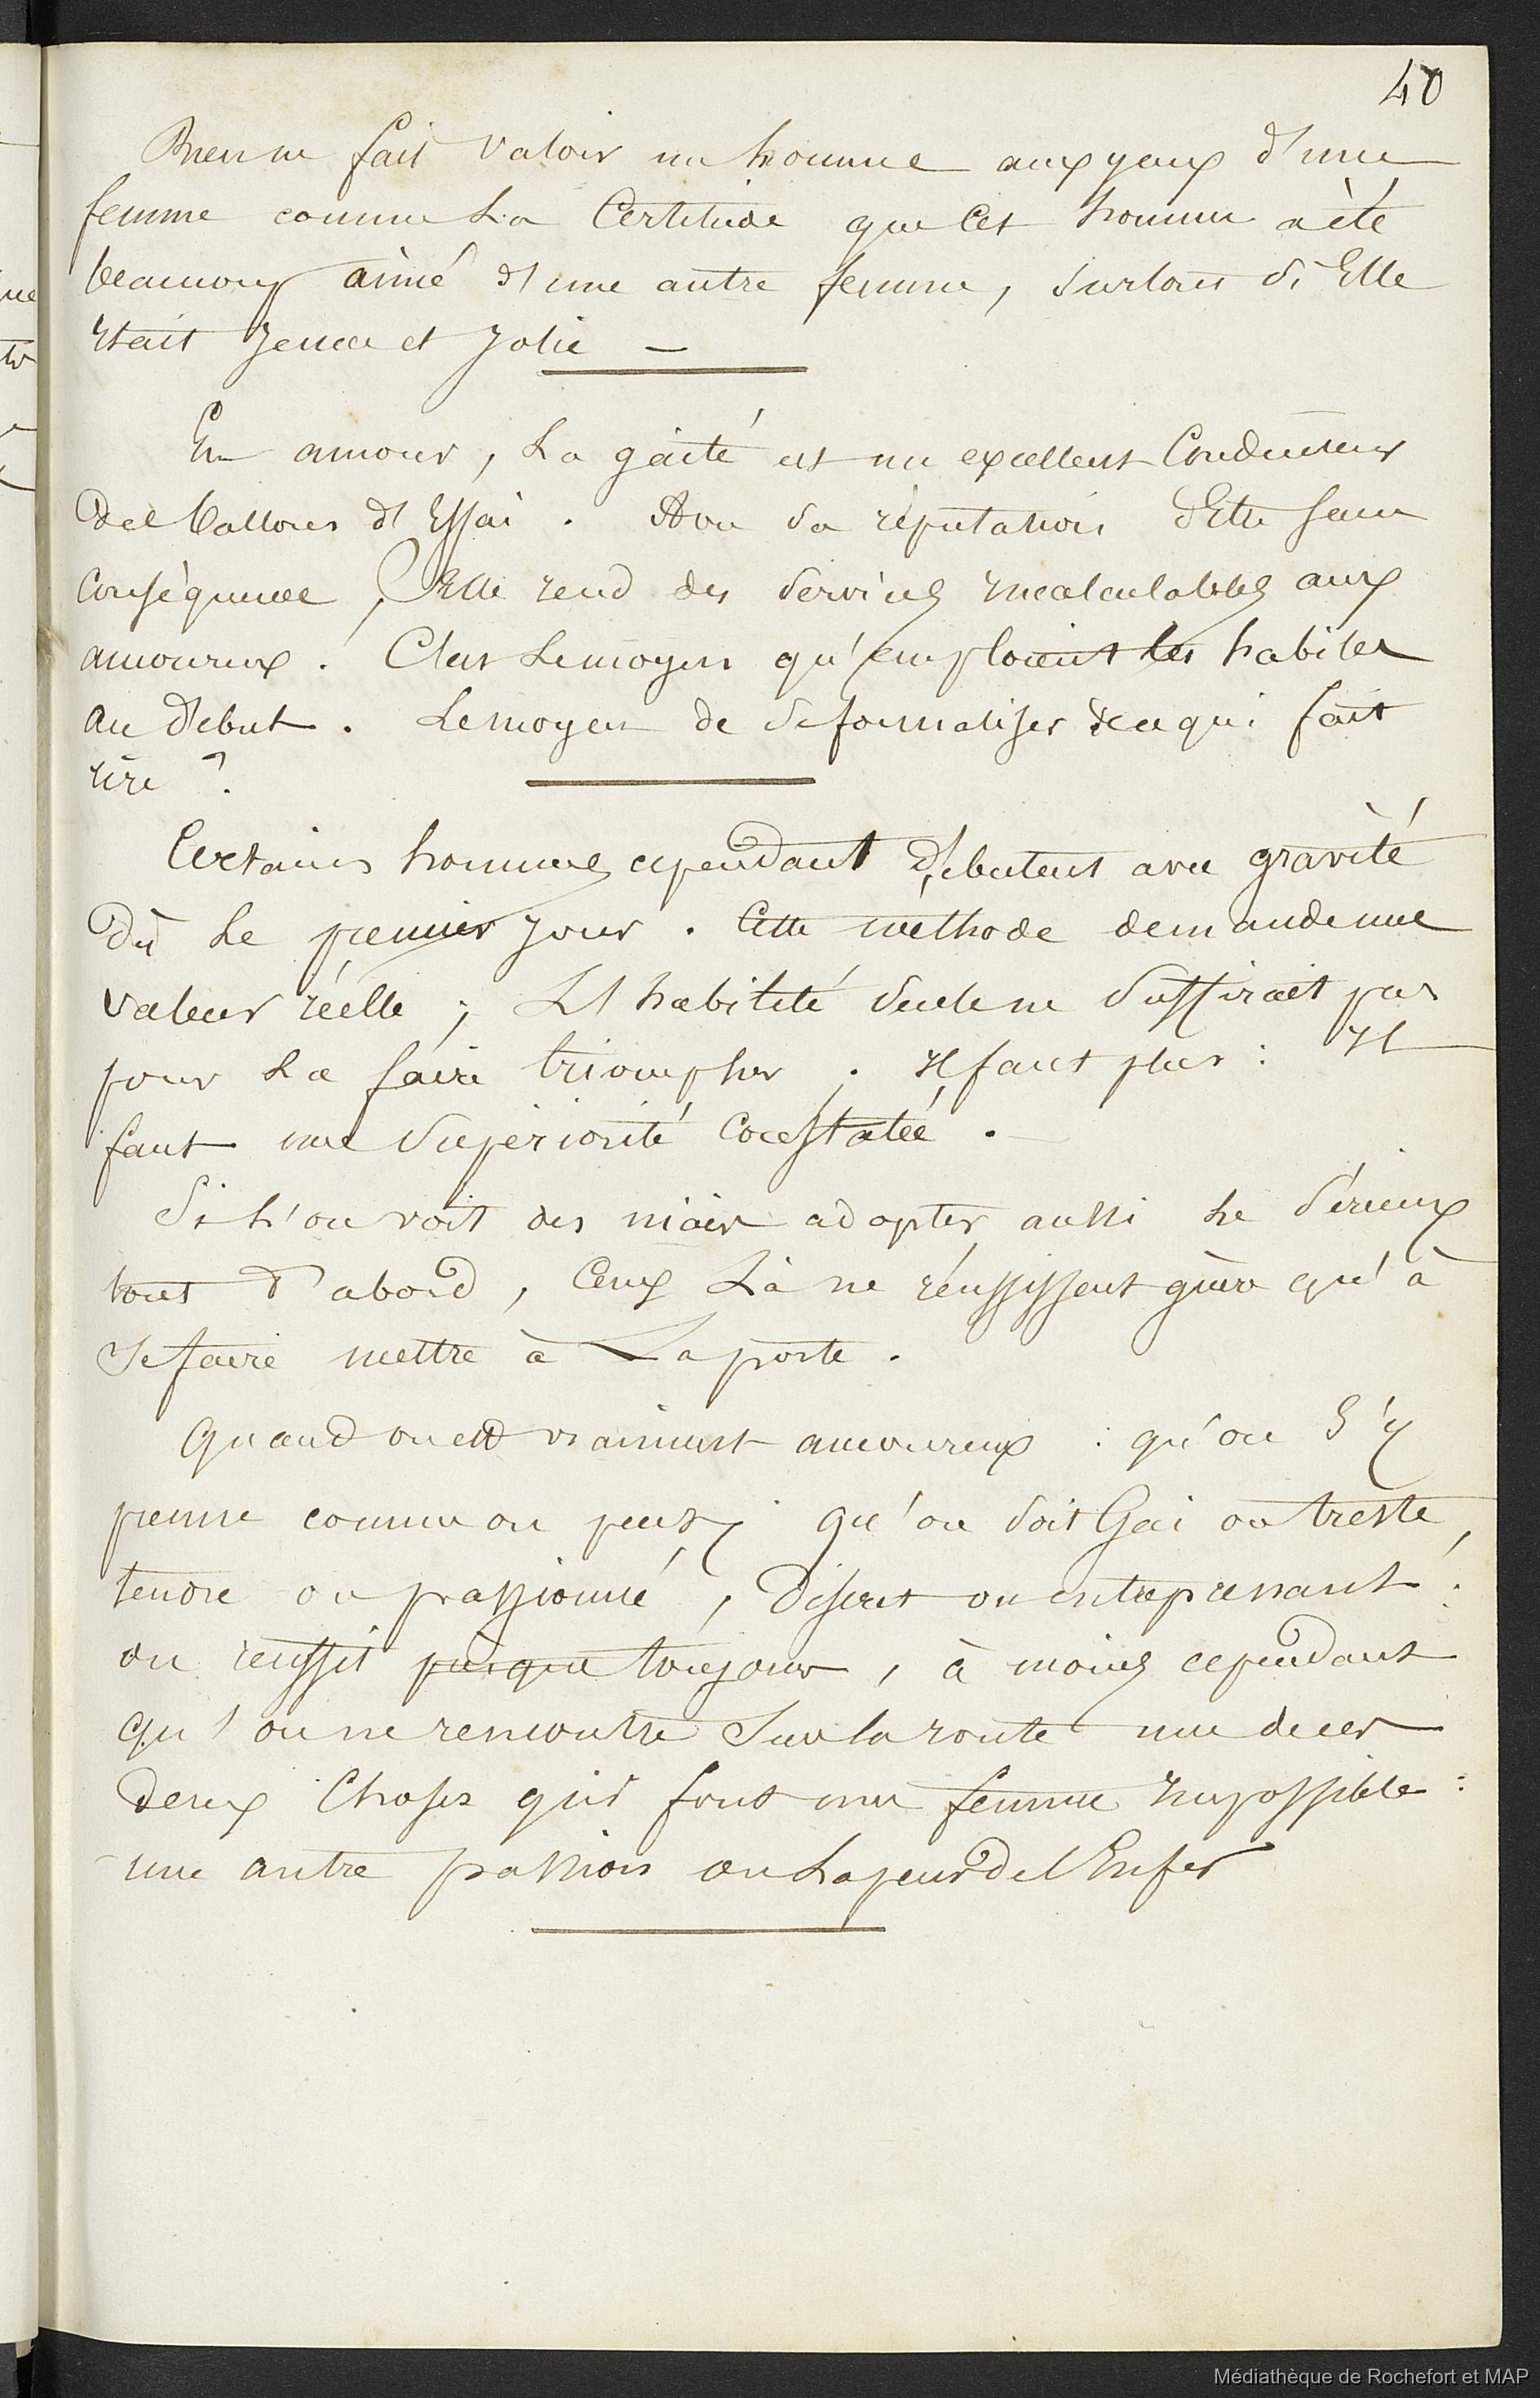 40
Rien ne fait valoir un homme aux yeux d'une
femme comme la Certitude que Cet homme a èté
beaucoup aimé d'une autre femme, surtout si Elle
Etait Jeune et Jolie —
En amour, La gaité est un excellent Conducteur
de ballons d'Essai. Avec sa réputation d'Etre sans
Conséquence, Elle rend des services incalculables aux
amoureux. C'est le moyen qu'emploient les habiles
au debut. Le moyen de se formaliser de ce qui fait
rire ?
Certains hommes cependant débutent avec gravité
Dès le premier jour. Cette méthode demande une
valeur réelle ; L'habileté seule ne suffirait pas
pour La faire triompher. Il faut plus : Il
faut une supériorité constatée.
Si l'on voit des niais adopter aussi le sérieux
tout d'abord, Ceux Là ne réussissent guère qu'à
se faire mettre à La porte.
Quand on est vraiment amoureux : qu'on s'y
prenne comme on peut, qu'on soit Gai ou triste,
tendre ou passionné, Discret ou entreprenant :
on reussit presque toujours, à moins cependant
qu'on ne rencontre sur la route une de ces
deux Choses qui font une femme Impossible :
une autre passion ou La peur de l'Enfer
Médiathèque de Rochefort et MAP